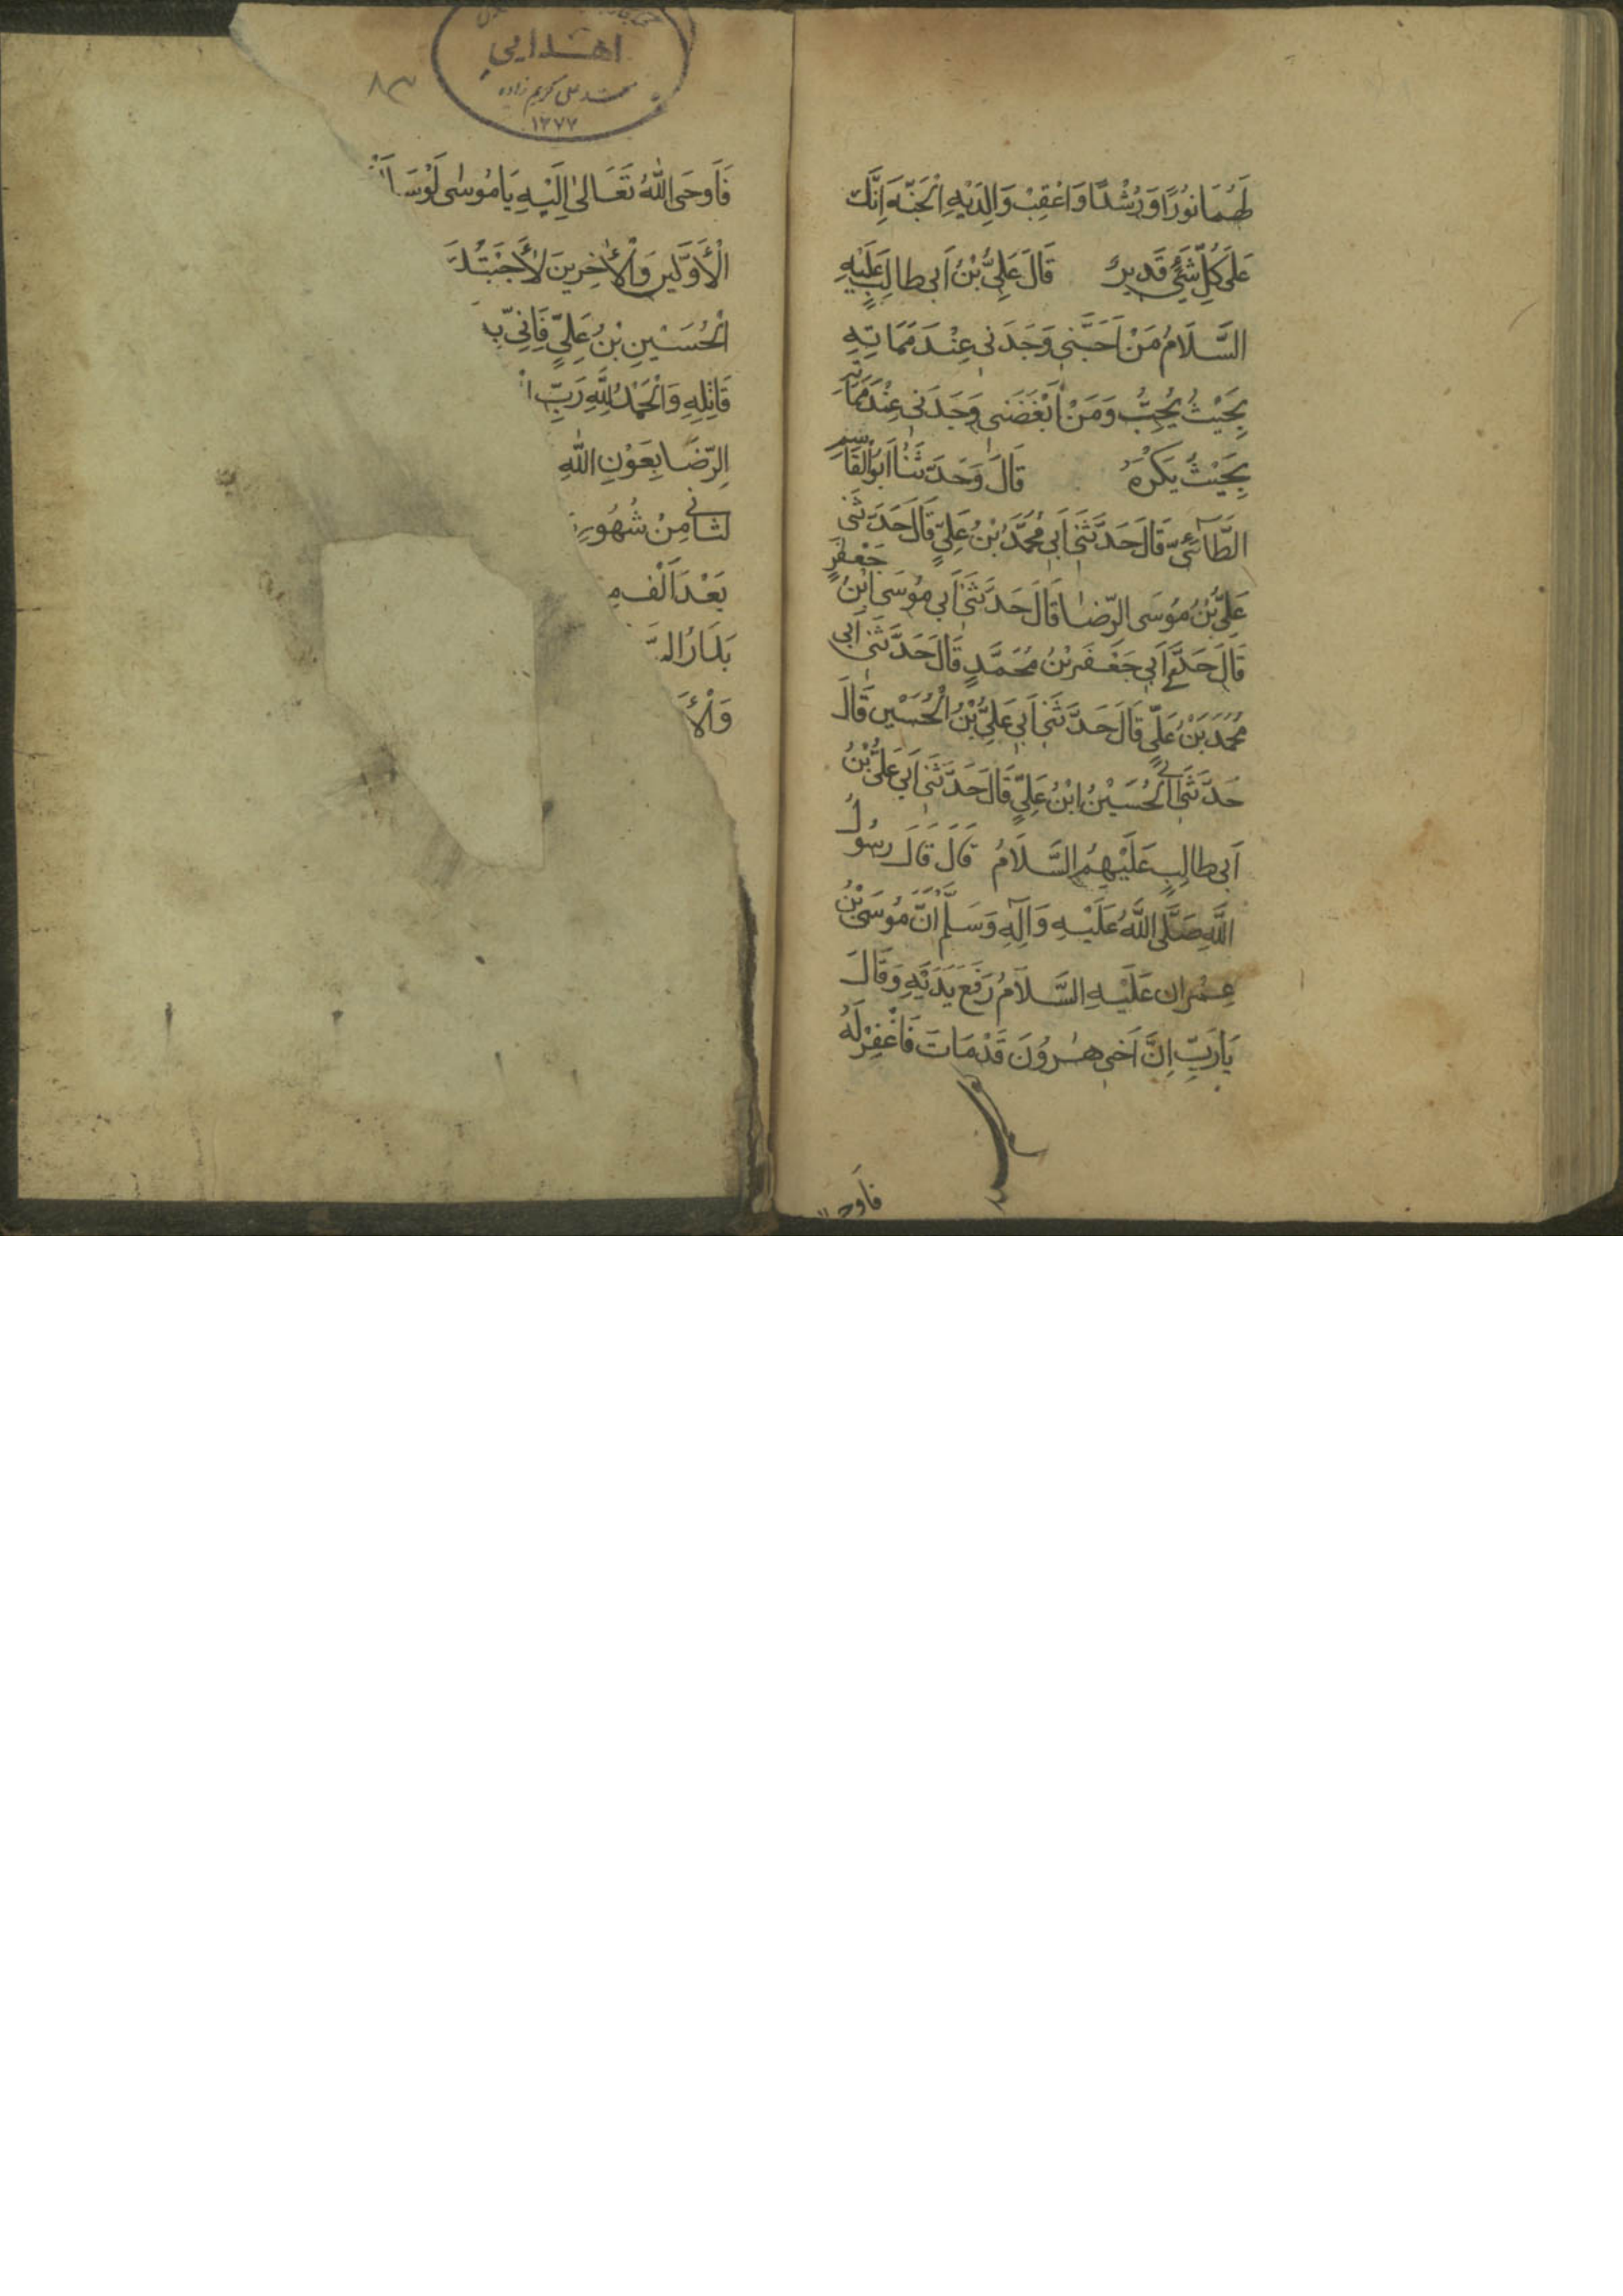 لَهُمَا نُورًا وَرُشْدًا وَاَعْقِبْ وَالِدَيْهِ الْجَنَّةَ اِنَّكَ
عَلَى كُلِّ شَيْءٍ قَدِيرٌ قَالَ عَلِيُّ بْنُ اَبِى طالِبٍ عَلَيْهِ
السَّلَامُ مَنْ اَحَبَّنِى وَجَدَنِى عِنْدَ مَمَاتِهِ
بِحَيْثُ يُحِبُّ وَمَنْ اَبْغَضَنِى وَجَدَنِى عِنْدَ مَمَاتِهِ
بِحَيْثُ يَكْرَهُ قَالَ وَحَدَّثَنَا اَبُو الْقَاسِمِ
الطَّائِىُّ قَالَ حَدَّثَنِى اَبِى مُحَمَّدُ بْنُ عَلِيٍّ قَالَ حَدَّثَنِى
عَلِيُّ بْنُ مُوسَى الرِّضَا قَالَ حَدَّثَنِى اَبِى مُوسَى ابْنُ جَعْفَرٍ
قَالَ حَدَّثَنِى اَبِى جَعْفَرُ بْنُ مُحَمَّدٍ قَالَ حَدَّثَنِى اَبِى
مُحَمَّدُ بْنُ عَلِيٍّ قَالَ حَدَّثَنِى اَبِى عَلِيُّ بْنُ الْحُسَيْنِ قَالَ
حَدَّثَنِى اَبِى الْحُسَيْنُ ابْنُ عَلِيٍّ قَالَ حَدَّثَنِى اَبِى عَلِيُّ بْنُ
اَبِى طالِبٍ عَلَيْهِمُ السَّلَامُ قَالَ قَالَ رَسُولُ
اللَّهِ صَلَّى اللَّهُ عَلَيْهِ وَآلِهِ وَسَلَّمَ اِنَّ مُوسَى بْنَ
عِمْرانَ عَلَيْهِ السَّلَامُ رَفَعَ يَدَيْهِ وَقَالَ
يَارَبِّ اِنَّ اَخِى هٰرُونَ قَدْ مَاتَ فَاغْفِرْ لَهُ
فَاَوحى
اهدایی
محمد علی کریم زاده
۱۳۷۷
۸۳
فَاَوحَى اللّٰهُ تَعَالىٰ اِلَيْهِ يَا مُوسٰى لَوْ سَاَ
الْاَوَّلِينَ وَالْاٰخِرِينَ لَاَجَبْتُكَ
الْحُسَيْنِ بْنُ عَلِيٍّ فَاِنِّى
قَاتِلِهِ وَالْحَمْدُ لِلّٰهِ رَبِّ
الرِّضَا بِعَوْنِ اللّٰهِ
لثانى مِنْ شُهُورِ
بَعْدَ اَلْف